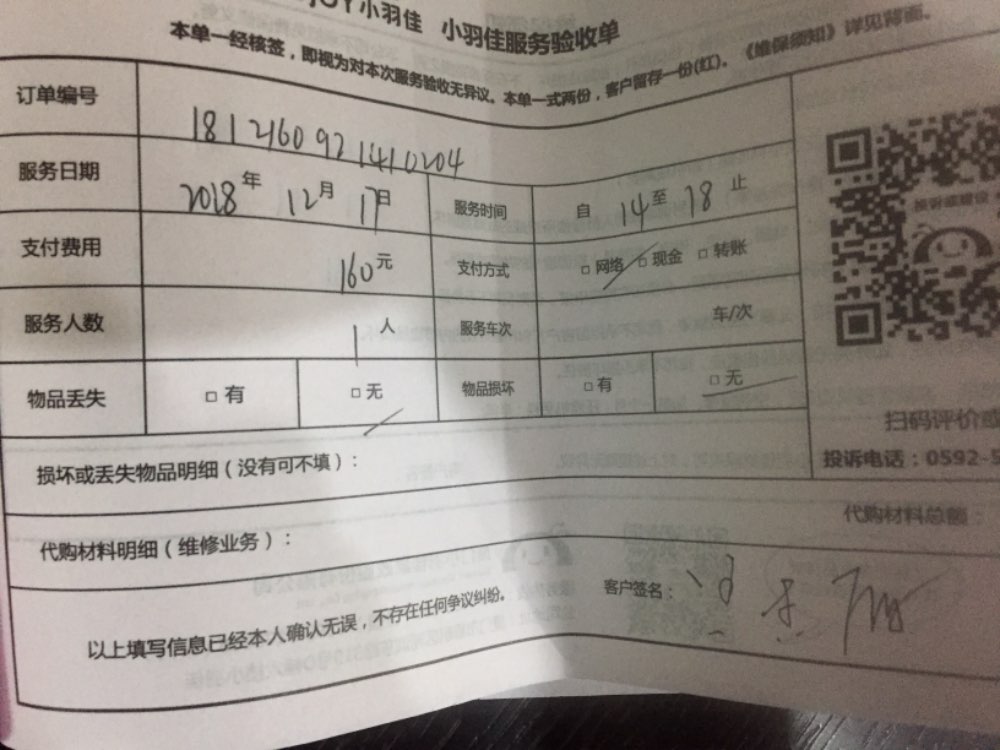 JOY小羽佳 小羽佳服务验收单
本单一经核签，即视为对本次服务验收无异议。本单一式两份，客户留存一份(红)。《维保须知》详见背面。
订单编号 1812160921410204
服务日期 2018年 12月 17日 服务时间 自 14 至 18 止
支付费用 160元 支付方式 □网络 □现金 □转账
服务人数 1人 服务车次 车/次
物品丢失 □有 □无 物品损坏 □有 □无
扫码评价或
损坏或丢失物品明细（没有可不填）：
投诉电话：0592-5
代购材料明细（维修业务）：
代购材料总额：
以上填写信息已经本人确认无误，不存在任何争议纠纷。
客户签名：